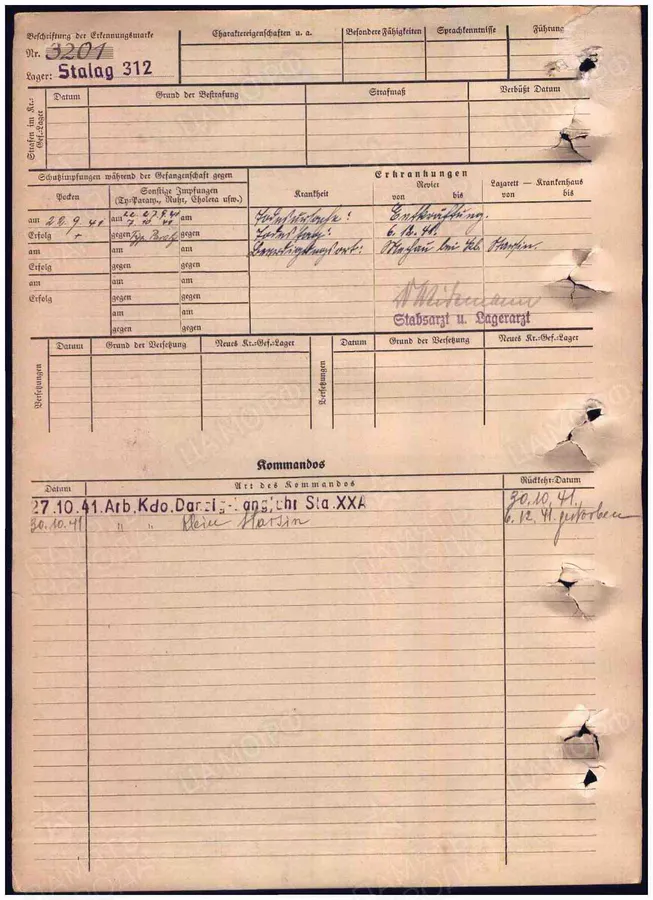 Beschriftung der Erkennungsmarke
Nr. 3201
Lager: Stalag 312
Charaktereigenschaften u. a.
Besondere Fähigkeiten
Sprachkenntnisse
Führung
Strafen im Kr.-Gef.-Lager
Datum
Grund der Bestrafung
Strafmaß
Verbüßt Datum
Schutzimpfungen während der Gefangenschaft gegen
Erkrankungen
Pocken
Sonstige Impfungen
(Ty-Paraty., Ruhr, Cholera usw.)
Krankheit
Revier
von bis
Lazarett — Krankenhaus
von bis
am 22.9.41
am
Todesursache: Entkräftung.
Erfolg +
gegen
Todestag: 6.12.41.
am
am
Beerdigungsort: bei
Erfolg
gegen
am
am
Erfolg
gegen
am
gegen
Stabsarzt u. Lagerarzt
Versetzungen
Datum
Grund der Versetzung
Neues Kr.-Gef.-Lager
Versetzungen
Datum
Grund der Versetzung
Neues Kr.-Gef.-Lager
Kommandos
Datum
Art des Kommandos
Rückkehr-Datum
27.10.41. Arb.Kdo.Danzig-Langfuhr Sta.XXA 30.10.41.
30.10.41 " " Klein 6.12.41. gestorben